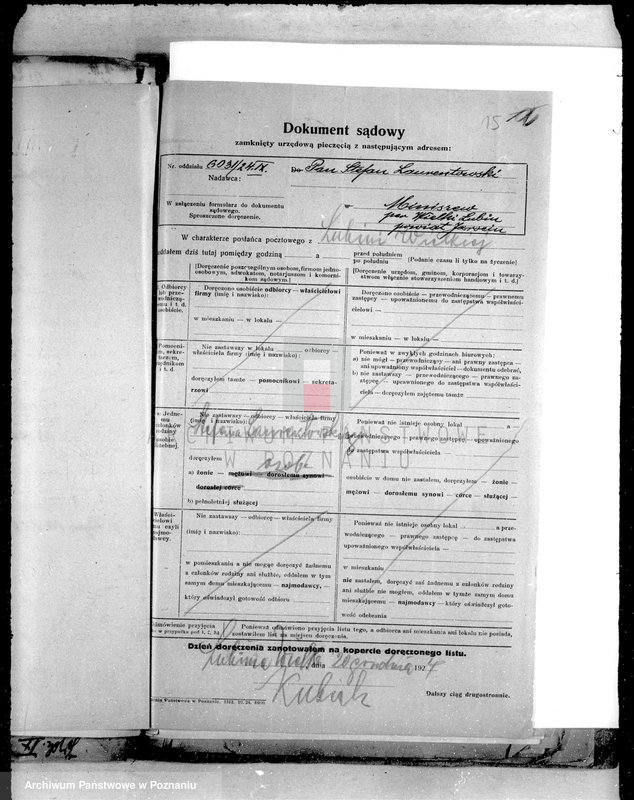 15
Dokument sądowy
zamknięty urzędową pieczęcią z następującym adresem:
Nr. oddziału 6031/24.IX.
Nadawca:
W załączeniu formularz do dokumentu
sądowego.
Sproszczone doręczenie.
Do Pan Stefan
Wielki Lubin
powiat Jarocin
W charakterze posłańca pocztowego z
oddałem dziś tutaj pomiędzy godziną — a przed południem
po południu (Podanie czasu li tylko na życzenie)
[Doręczenie poszczególnym osobom, firmom jedno-
osobowym, adwokatom, notarjuszom i komorni-
kom sądowym.]
[Doręczenie urzędom, gminom, korporacjom i towarzy-
stwom włącznie stowarzyszeniom handlowym i t. d.]
Odbiorcy
lub prze-
wodniczą-
cemu i t. d.
osobiście.
Doręczono osobiście odbiorcy — właścicielowi
firmy (imię i nazwisko):
w mieszkaniu — w lokalu —
Doręczono osobiście — przewodniczącemu — prawnemu
zastępcy — upoważnionemu do zastępstwa współwłaści-
cielowi —
w mieszkaniu — w lokalu —
Pomocni-
kom, sekre-
tarzom,
urzędnikom
i t. d.
Nie zastawszy w lokalu odbiorcy —
właściciela firmy (imię i nazwisko):
doręczyłem tamże — pomocnikowi — sekreta-
rzowi
Ponieważ w zwykłych godzinach biurowych:
a) nie mógł — przewodniczący — ani prawny zastępca —
ani upoważniony współwłaściciel — dokumentu odebrać,
b) nie zastawszy — przewodniczącego — prawnego za-
stępcę — upoważnionego do zastępstwa współwłaści-
ciela — doręczyłem zajętemu tamże
Nie zastawszy — odbiorcy — właściciela firmy
(imię i nazwisko):
Stefana
doręczyłem
a) żonie — mężowi — dorosłemu synowi
dorosłej córce
b) pełnoletniej służącej
Ponieważ nie istnieje osobny lokal — a —
przewodniczącego — prawnego zastępcę — upoważnionego
do zastępstwa współwłaściciela —
osobiście w domu nie zastałem, doręczyłem — żonie —
mężowi — dorosłemu synowi — córce — służącej
Właści-
cielowi
domu czyli
najmo-
dawcy.
Nie zastawszy — odbiorcę — właściciela firmy
(imię i nazwisko):
w pomieszkaniu a nie mogąc doręczyć żadnemu
z członków rodziny ani służbie, oddałem w tym
samym domu mieszkającemu — najmodawcy, —
który oświadczył gotowość odbioru
Ponieważ nie istnieje osobny lokal — a prze-
wodniczącego — prawnego zastępcę — do zastępstwa
upoważnionego współwłaściciela —
w mieszkaniu
nie zastałem, doręczyć zaś żadnemu z członków rodziny
ani służbie nie mogłem, oddałem w tymże samym domu
mieszkającemu — najmodawcy — który oświadczył goto-
wość odebrania
Ponieważ odmówiono przyjęcia listu tego, a odbiorca ani mieszkania ani lokalu nie posiada,
zostawiłem list na miejscu doręczenia.
Dzień doręczenia zanotowałem na kopercie doręczonego listu.
dnia 20 grudnia 1924
Kubiak
Dalszy ciąg drugostronnie.
ARCHIWUM PAŃSTWOWE
W POZNANIU
Archiwum Państwowe w Poznaniu